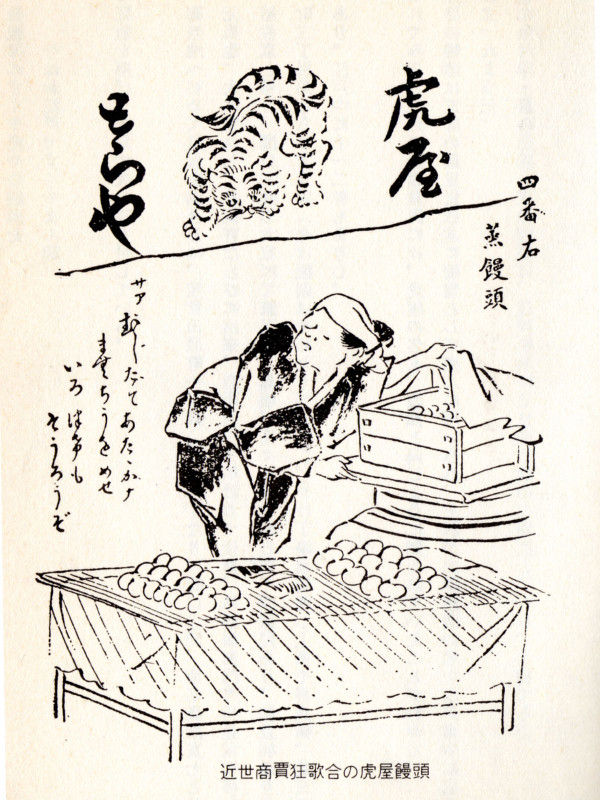 虎屋
とらや
四番右
蒸饅頭
サアむしたてあたゝかナ
まんちうをめせ
いろ
そうろうぞ
近世商賈狂歌合の虎屋饅頭